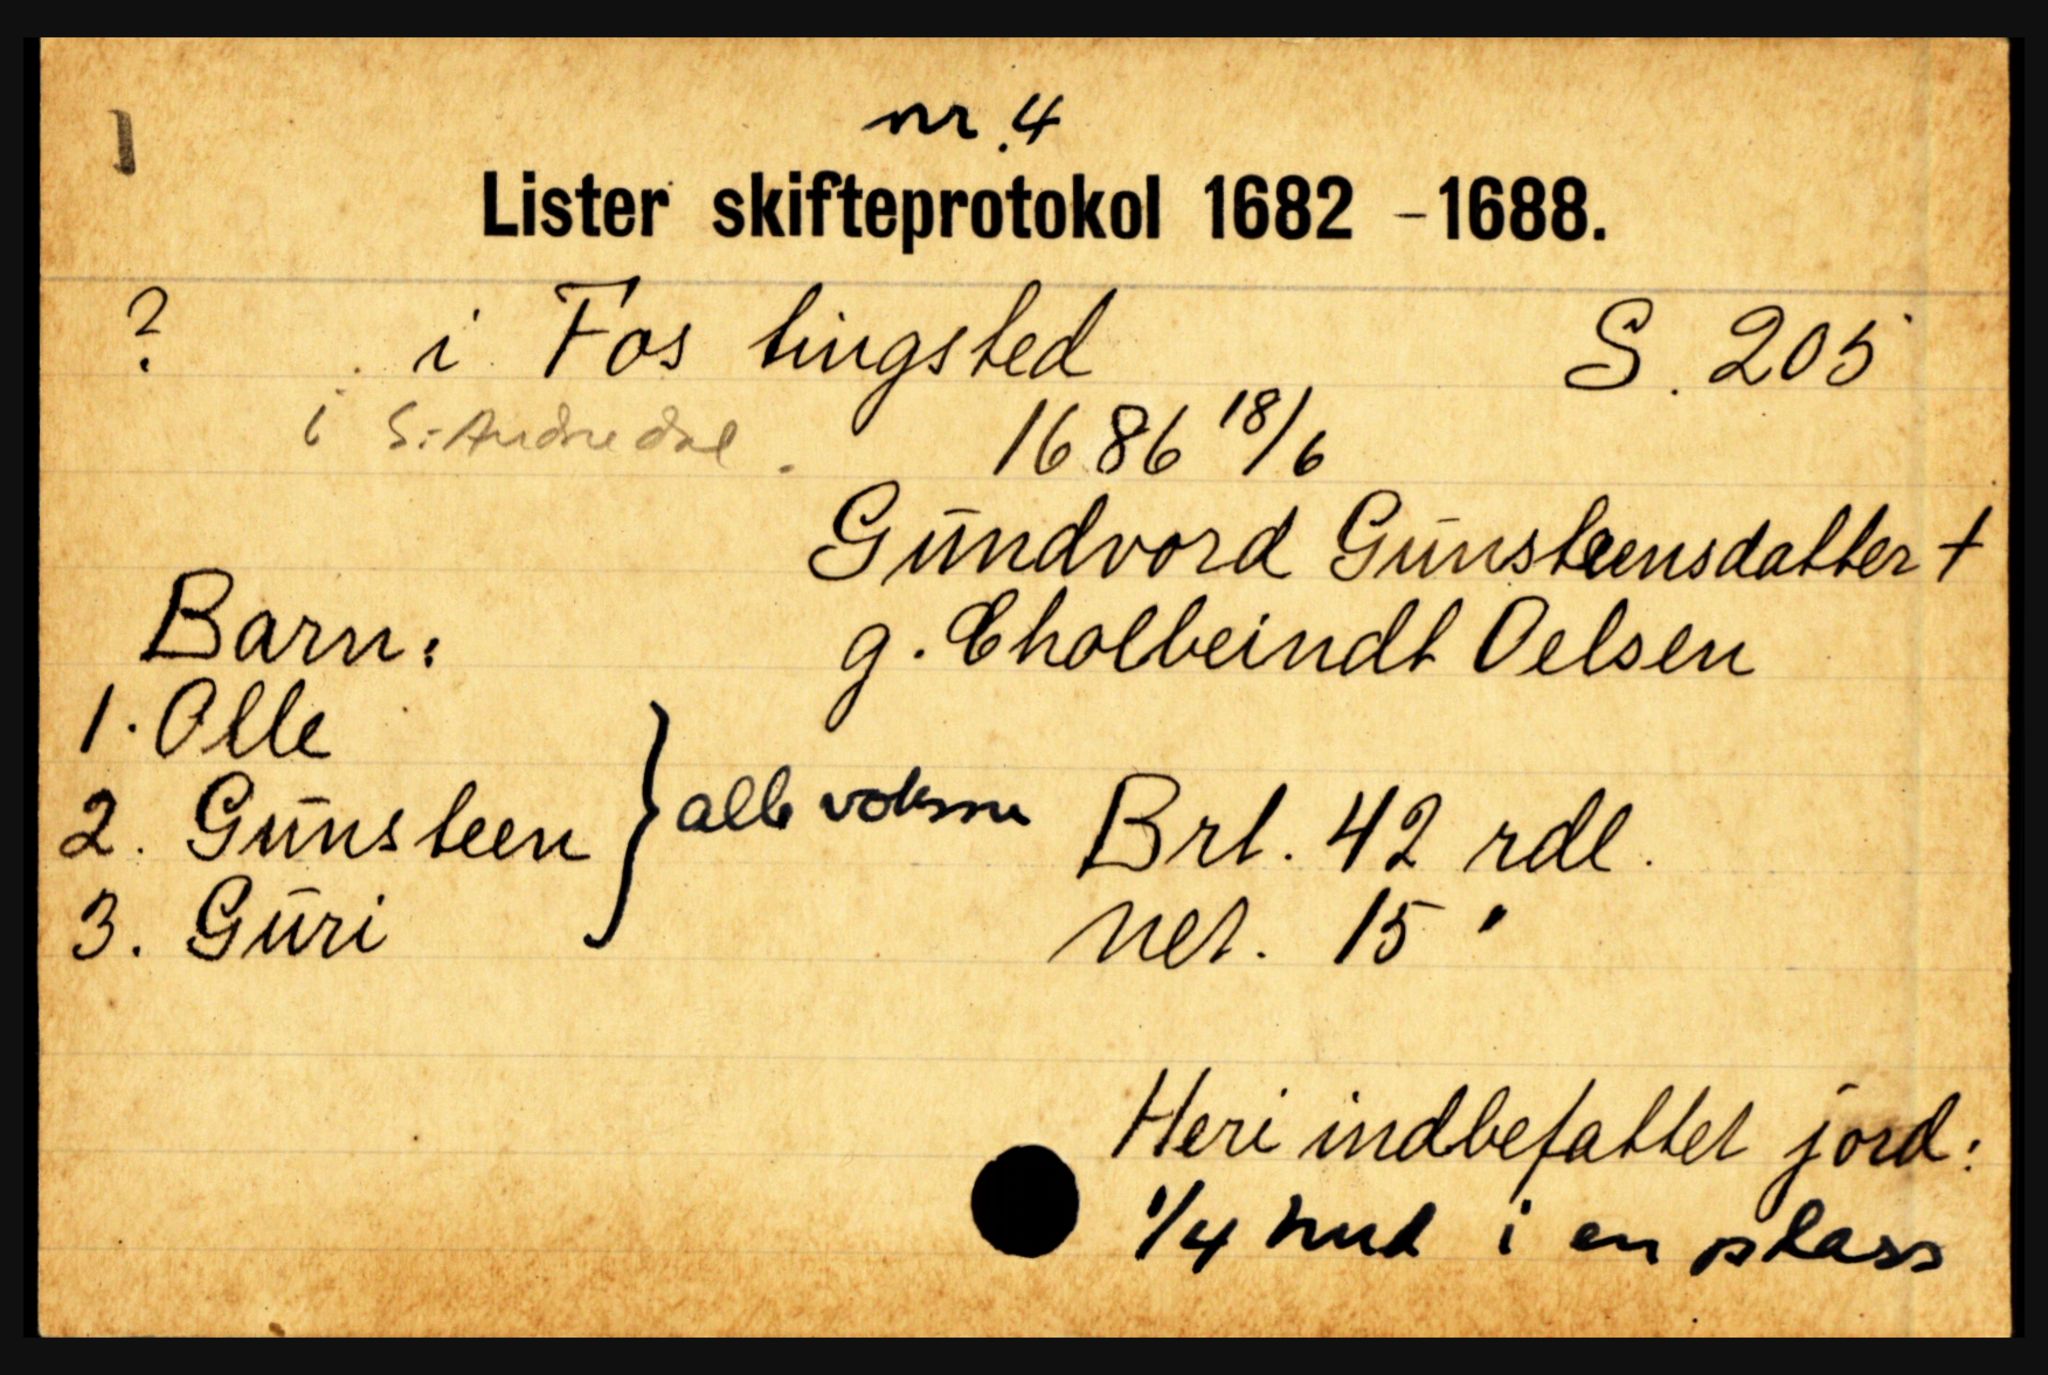 1
nr. 4
Lister skifteprotokol 1682 - 1688.
? i Fos tingsted S. 205
i S: Andredal.
1686 18/6
Gūndvord Gūnsteensdatter +
Barn: g. Eholbeindt Oelsen
1. Olle
2. Gūnsteen } alle voksne Brt. 42 rdl.
3. Gūri net. 15 "
Heri indbefattet jord:
1/4 hud i en plass